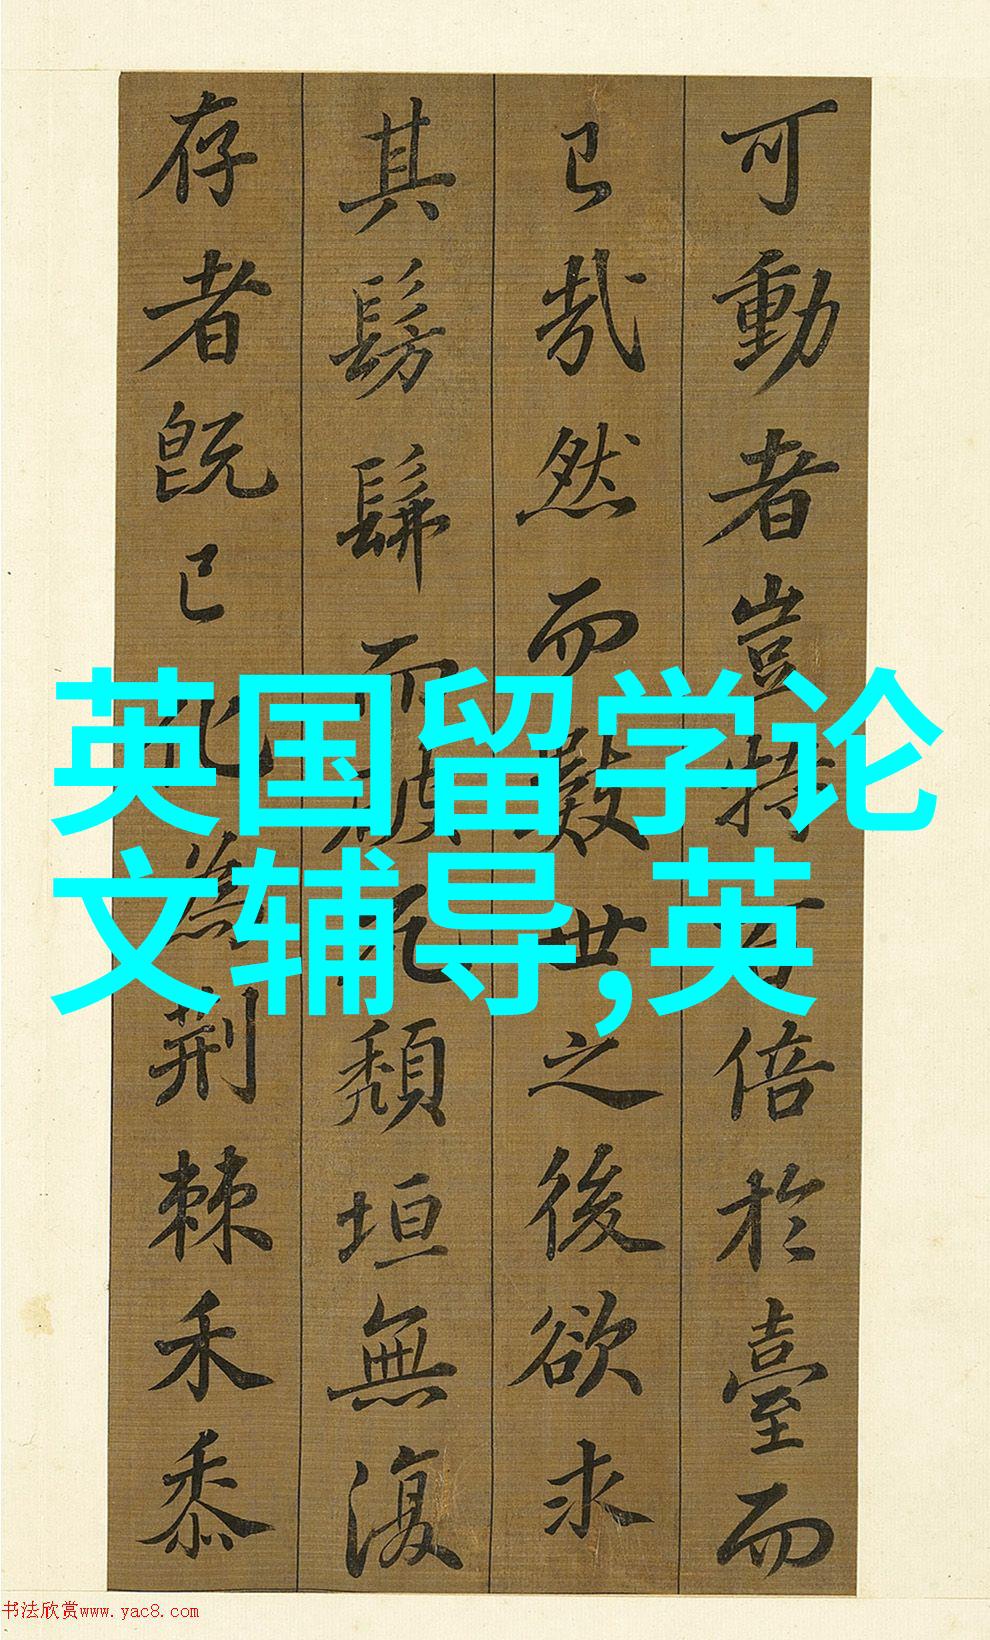 可動者豈特百倍於臺而
已哉然而數世之後欲求
其髣髴而破瓦頹垣無復
存者既已化為荊棘禾黍
英国留学论
文辅导,英
书法欣赏www.yac8.com